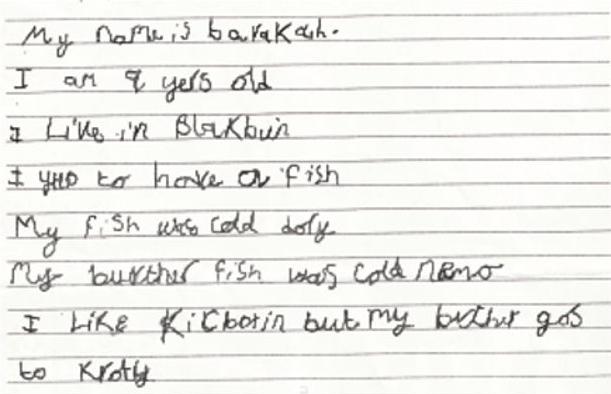 My name is barakah.
I am 9 yers old
I Live in Blakbuin
I yus to have a fish
My fish was cold dory
My burther fish was cold nemo
I Like Kicboxin but my buther gos
to Kroty